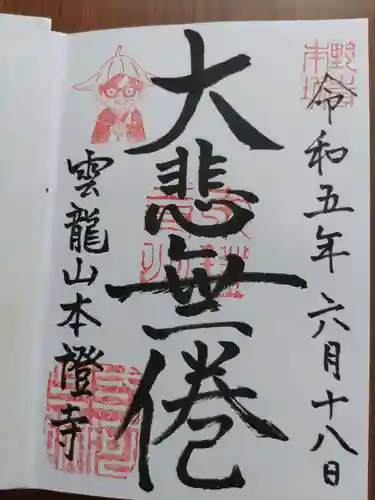 令和五年 六月十八日
大悲無倦
雲龍山本證寺